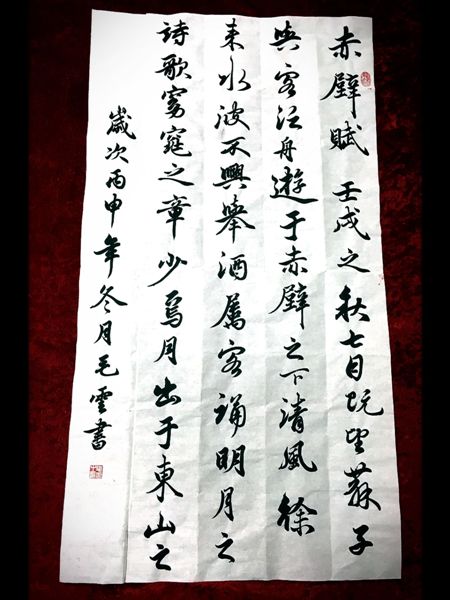 赤壁賦 壬戌之秋七月既望蘇子
與客泛舟遊于赤壁之下清風徐
来水波不興舉酒属客誦明月之
詩歌窈窕之章少焉月出于東山之
歲次丙申年冬月毛雲書